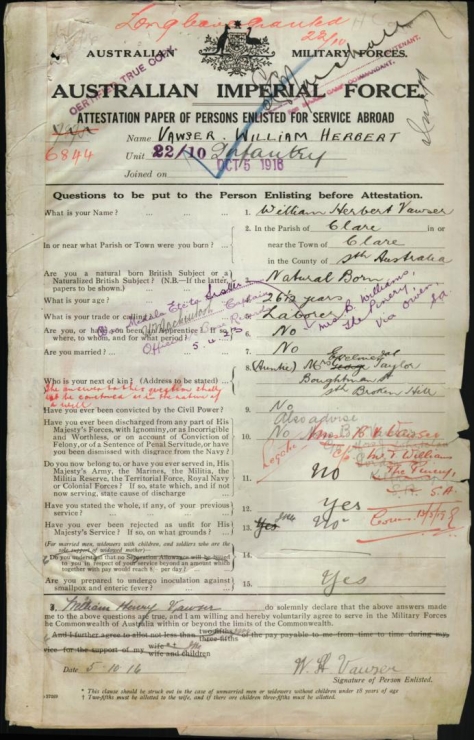 Long leave granted
22/10
AUSTRALIAN MILITARY FORCES.
CERTIFIED TRUE COPY
AUSTRALIAN IMPERIAL FORCE.
ATTESTATION PAPER OF PERSONS ENLISTED FOR SERVICE ABROAD
6844
Name VAWSER. WILLIAM HERBERT
Unit 22/10 Infantry
Joined on OCT 5 1916
Questions to be put to the Person Enlisting before Attestation.
What is your Name? 1. William Herbert Vawser
In or near what Parish or Town were you born? 2. In the Parish of Clare in or
near the Town of Clare
in the County of Sth Australia
Are you a natural born British Subject or a 3. Natural Born
Naturalised British Subject? (N.B.—If the latter,
papers to be shown.)
What is your age? 26 2/12 years
What is your trade or calling? Laborer
Are you, or have you been an Apprentice? If so, 6. No
where, to whom, and for what period?
Mrs B. Williams,
The Pinery,
via Owen SA
Officer
5.4.23
Are you married? 7. No
Who is your next of kin? (Address to be stated) 8. (Auntie) Mrs George Taylor
Boughtman St
Sth Broken Hill
The answer to this question shall
not be construed as in the nature of
a will
Have you ever been convicted by the Civil Power? 9. No
Also advise
Have you ever been discharged from any part of His 10. No
Majesty's Forces, with Ignominy, or as Incorrigible
and Worthless, or on account of Conviction of
Felony, or of a Sentence of Penal Servitude, or have
you been dismissed with disgrace from the Navy?
Vawser
c/o Mrs T Williams
The Pinery,
S.A.
Do you now belong to, or have you ever served in, His 11. No
Majesty's Army, the Marines, the Militia, the
Militia Reserve, the Territorial Force, Royal Navy
or Colonial Forces? If so, state which, and if not
now serving, state cause of discharge
Have you stated the whole, if any, of your previous 12. Yes
service?
Have you ever been rejected as unfit for His 13. Yes No
Majesty's Service? If so, on what grounds?
(For married men, widowers with children, and soldiers who are the
sole support of widowed mother)—
Do you understand that no Separation Allowance will be issued 14.
to you in respect of your service beyond an amount which
together with pay would reach 8s. per day?
Are you prepared to undergo inoculation against 15. Yes
smallpox and enteric fever?
I, William Henry Vawser do solemnly declare that the above answers made
me to the above questions are true, and I am willing and hereby voluntarily agree to serve in the Military Forces
the Commonwealth of Australia within or beyond the limits of the Commonwealth.
And I further agree to allot not less than two-fifths three-fifths of the pay payable to me from time to time during my
vice for the support of my wife wife and children
Date 5.10.16 W. H. Vawser
Signature of Person Enlisted.
* This clause should be struck out in the case of unmarried men or widowers without children under 18 years of age
† Two-fifths must be allotted to the wife, and if there are children three-fifths must be allotted.